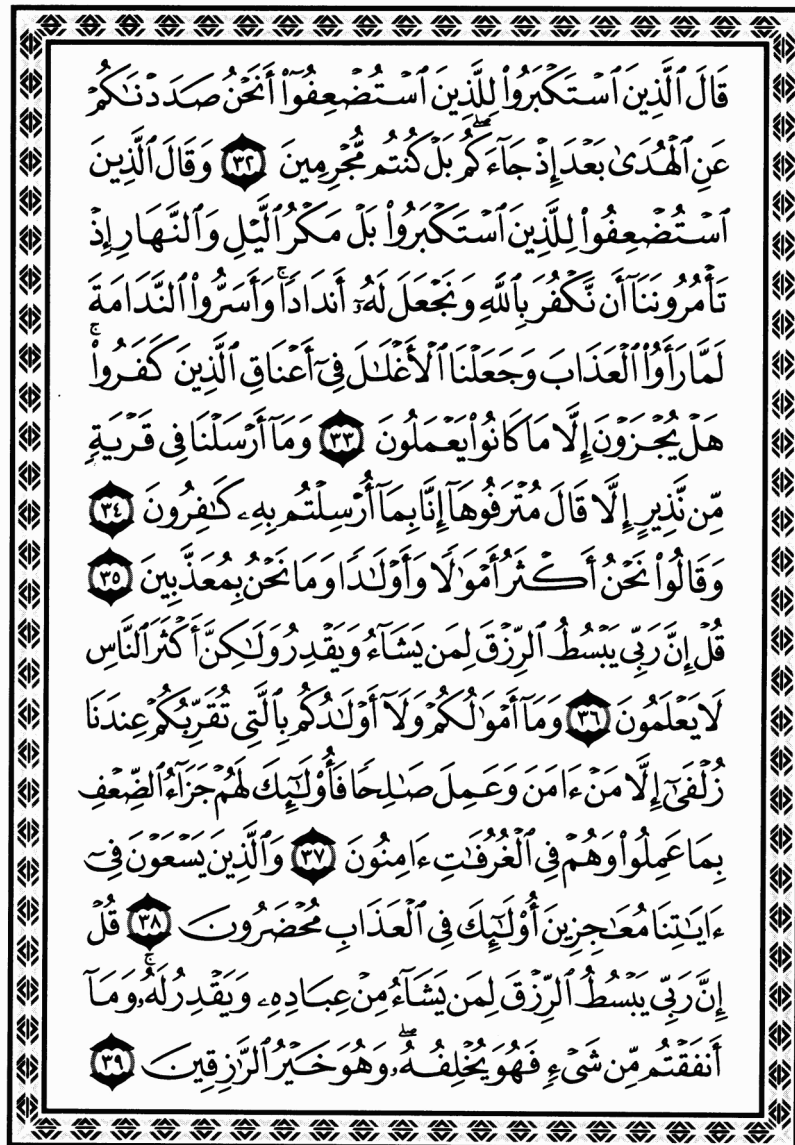 قَالَ ٱلَّذِينَ ٱسۡتَكۡبَرُواْ لِلَّذِينَ ٱسۡتُضۡعِفُوٓاْ أَنَحۡنُ صَدَدۡنَٰكُمۡ
عَنِ ٱلۡهُدَىٰ بَعۡدَ إِذۡ جَآءَكُمۖ بَلۡ كُنتُم مُّجۡرِمِينَ ٣٢ وَقَالَ ٱلَّذِينَ
ٱسۡتُضۡعِفُواْ لِلَّذِينَ ٱسۡتَكۡبَرُواْ بَلۡ مَكۡرُ ٱلَّيۡلِ وَٱلنَّهَارِ إِذۡ
تَأۡمُرُونَنَآ أَن نَّكۡفُرَ بِٱللَّهِ وَنَجۡعَلَ لَهُۥٓ أَندَادٗاۚ وَأَسَرُّواْ ٱلنَّدَامَةَ
لَمَّا رَأَوُاْ ٱلۡعَذَابَ وَجَعَلۡنَا ٱلۡأَغۡلَٰلَ فِيٓ أَعۡنَاقِ ٱلَّذِينَ كَفَرُواْۚ
هَلۡ يُجۡزَوۡنَ إِلَّا مَا كَانُواْ يَعۡمَلُونَ ٣٣ وَمَآ أَرۡسَلۡنَا فِي قَرۡيَةٖ
مِّن نَّذِيرٍ إِلَّا قَالَ مُتۡرَفُوهَآ إِنَّا بِمَآ أُرۡسِلۡتُم بِهِۦ كَٰفِرُونَ ٣٤
وَقَالُواْ نَحۡنُ أَكۡثَرُ أَمۡوَٰلٗا وَأَوۡلَٰدٗا وَمَا نَحۡنُ بِمُعَذَّبِينَ ٣٥
قُلۡ إِنَّ رَبِّي يَبۡسُطُ ٱلرِّزۡقَ لِمَن يَشَآءُ وَيَقۡدِرُ وَلَٰكِنَّ أَكۡثَرَ ٱلنَّاسِ
لَا يَعۡلَمُونَ ٣٦ وَمَآ أَمۡوَٰلُكُمۡ وَلَآ أَوۡلَٰدُكُم بِٱلَّتِي تُقَرِّبُكُمۡ عِندَنَا
زُلۡفَىٰٓ إِلَّا مَنۡ ءَامَنَ وَعَمِلَ صَٰلِحٗا فَأُوْلَٰٓئِكَ لَهُمۡ جَزَآءُ ٱلضِّعۡفِ
بِمَا عَمِلُواْ وَهُمۡ فِي ٱلۡغُرُفَٰتِ ءَامِنُونَ ٣٧ وَٱلَّذِينَ يَسۡعَوۡنَ فِيٓ
ءَايَٰتِنَا مُعَٰجِزِينَ أُوْلَٰٓئِكَ فِي ٱلۡعَذَابِ مُحۡضَرُونَ ٣٨ قُلۡ
إِنَّ رَبِّي يَبۡسُطُ ٱلرِّزۡقَ لِمَن يَشَآءُ مِنۡ عِبَادِهِۦ وَيَقۡدِرُ لَهُۥۚ وَمَآ
أَنفَقۡتُم مِّن شَيۡءٖ فَهُوَ يُخۡلِفُهُۥۖ وَهُوَ خَيۡرُ ٱلرَّٰزِقِينَ ٣٩